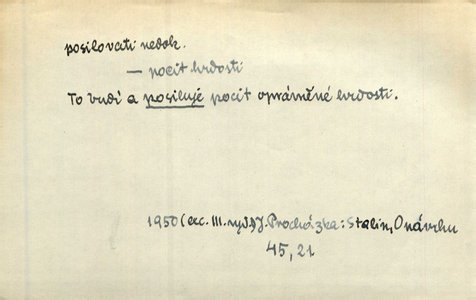 posilovati nedok.
— pocit hrdosti
To budí a posiluje pocit oprávněné hrdosti.
1950 (exc. III. vyd.) J. Procházka: Stalin, O návrhu
45, 21